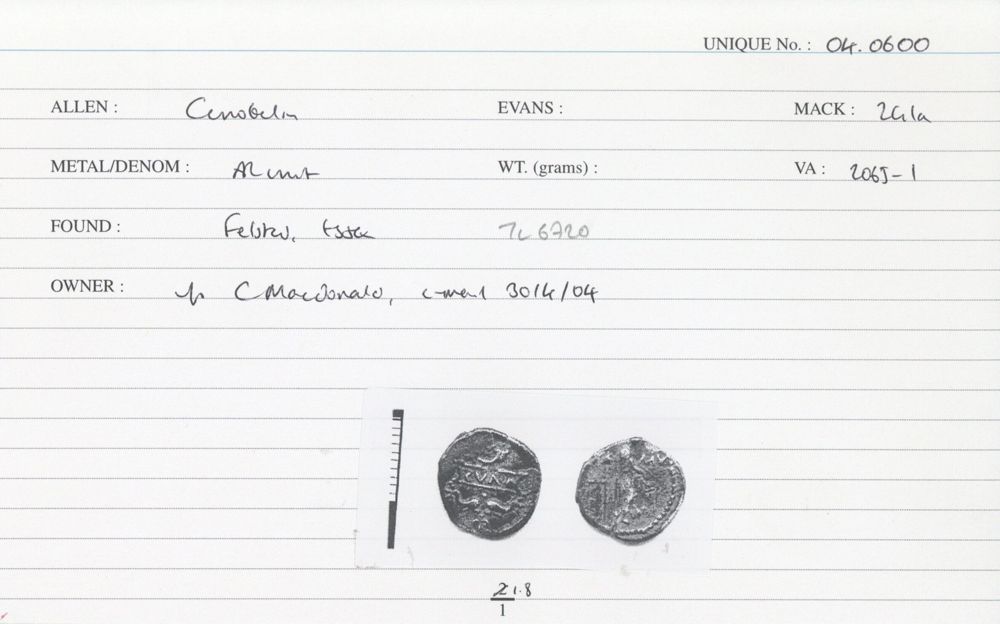 UNIQUE No. : 04.0600
ALLEN : Cunobelin EVANS : MACK : 241a
METAL/DENOM : AR unit WT. (grams) : VA : 2065-1
FOUND : Felsted, Essex TL 6720
OWNER : C Macdonald, e-mail 30/4/04
CVNO
2 1.8
1